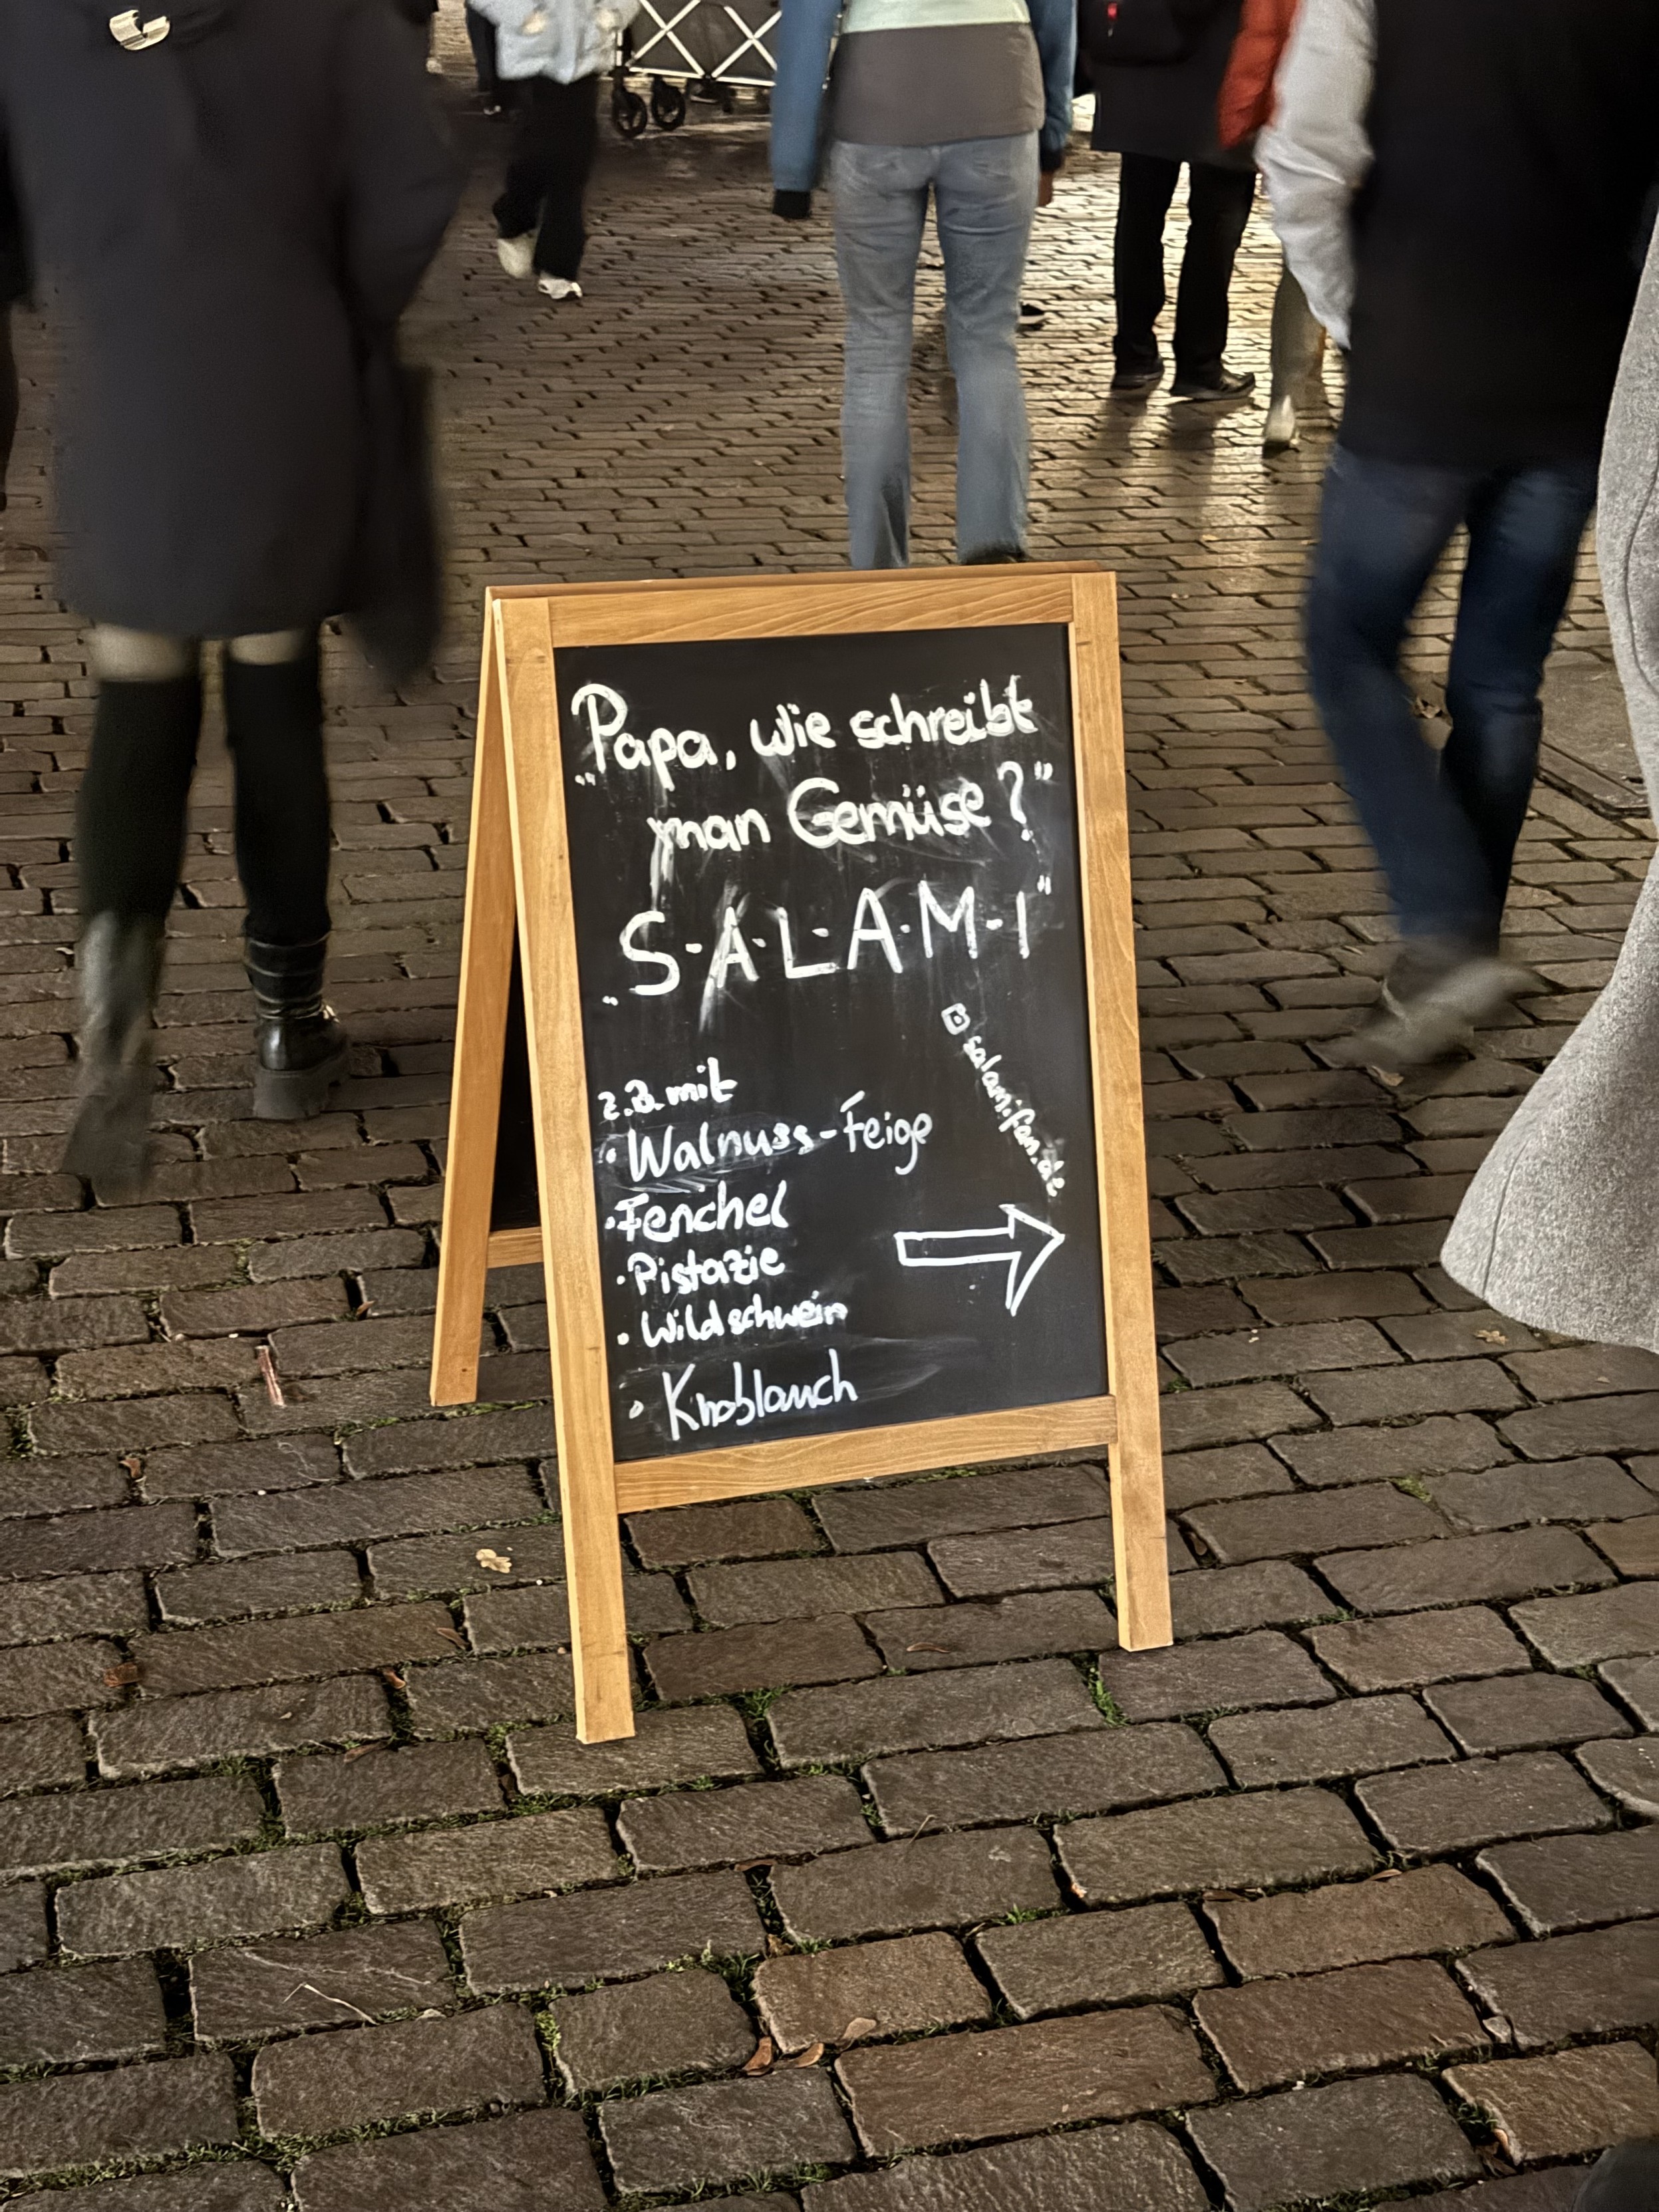 „Papa, wie schreibt
man Gemüse?"
„S-A-L-A-M-I"
salamifan.de
z.B. mit
· Walnuss-Feige
· Fenchel
· Pistazie
· Wildschwein
· Knoblauch